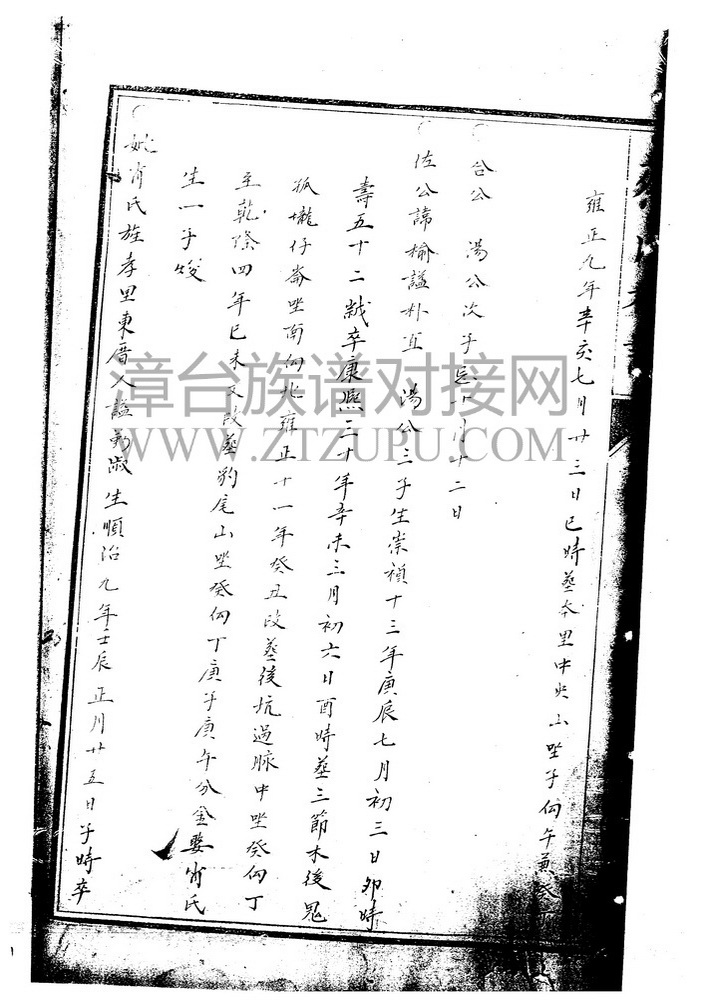 雍正九年辛亥七月廿三日巳時葬本里中央山坐子向午
台公 湯公次子忌十月十二日
佐公諱榆謚朴直 湯公三子生崇禎十三年庚辰七月初三日卯時
壽五十二歲卒康熙三十年辛未三月初六日酉時葬三節木後
孤壠仔崙坐南向北雍正十一年癸丑改葬後坑過脉中坐癸向丁
至乾隆四年己未又改葬豹尾山坐癸向丁庚子庚午分金娶甯氏
生一子
妣甯氏旌孝里東厝人謚 淑生順治九年壬辰正月廿五日子時卒
漳台族谱对接网
WWW.ZTZUPU.COM